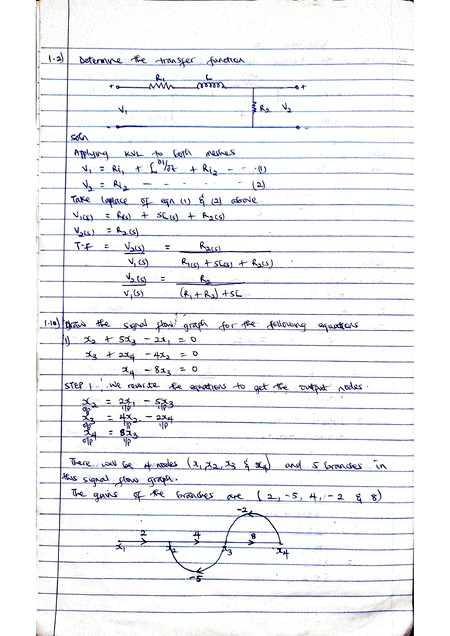 1.2) Determine the transfer function
R1 L
+ +
V1 R2 V2
- -
soln
Applying KVL to both meshes
V1 = Ri1 + L di/dt + Ri2 - - - (1)
V2 = Ri2 - - - - - - (2)
Take laplace of eqn (1) & (2) above
V1(s) = R(s) + SL(s) + R2(s)
V2(s) = R2(s)
T.F = V2(s) = R2(s)
V1(s) R1(s) + SL(s) + R2(s)
V2(s) = R2
V1(s) (R1 + R2) + SL
1.10) Draw the signal flow graph for the following equations
i) x2 + 5x3 - 2x1 = 0
x3 + 2x4 - 4x2 = 0
x4 - 8x3 = 0
STEP 1: We rewrite the equations to get the output nodes.
x2 = 2x1 - 5x3
o/p i/p i/p
x3 = 4x2 - 2x4
o/p i/p i/p
x4 = 8x3
o/p i/p
There will be 4 nodes (x1, x2, x3 & x4) and 5 branches in
this signal flow graph.
The gains of the branches are (2, -5, 4, -2 & 8)
-2
2 4 8
x1 x2 x3 x4
-5